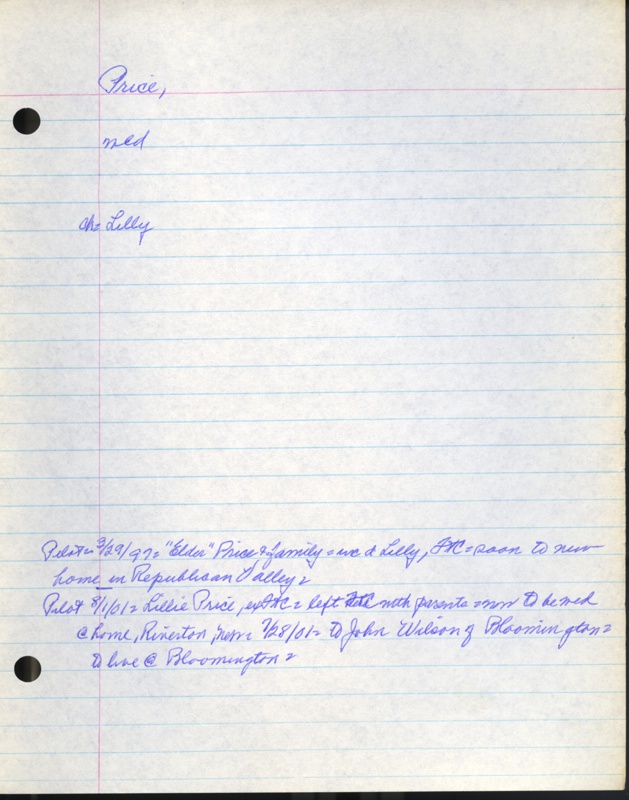 Price,
wed
ch= Lilly
Pilot= 3/29/97= "Elder" Price & family = wc d Lilly, FTC= soon to new
home in Republican Valley=
Pilot 8/1/01= Lillie Price, ex FTC= left with parents = now to be wed
@ home, Riverton, 7/28/01= to John Wilson of Bloomington=
to live @ Bloomington=